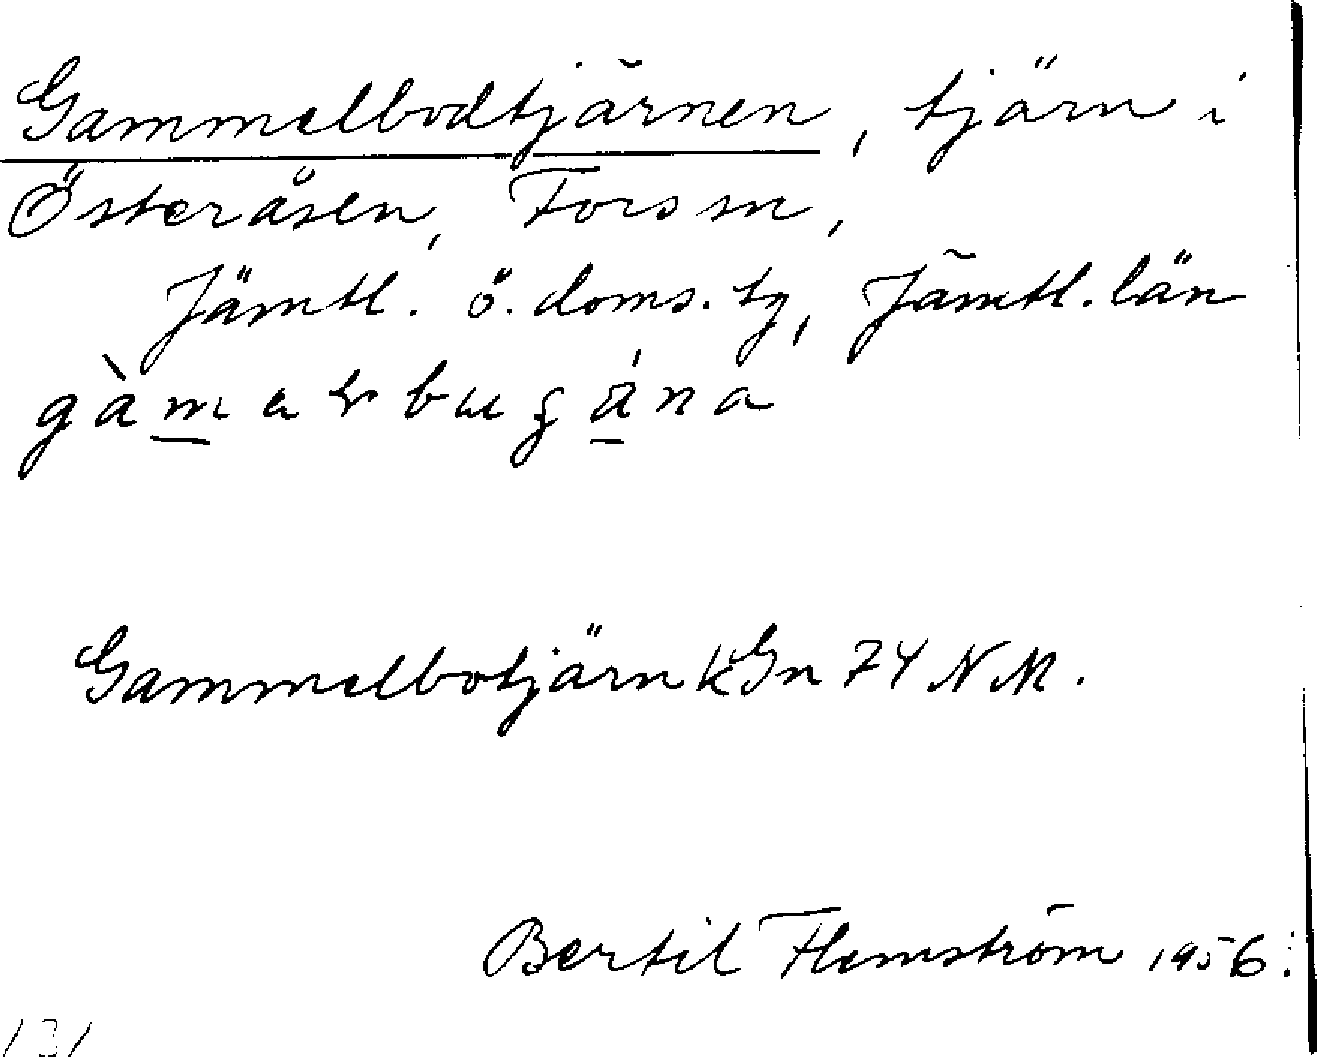 Gammelbodtjärnen, tjärn i
Österåsen, Forsm,
Jämtl. ö. doms. tg, Jämtl. län
Gammelbotjärn kGn 74 NM.
Bertil Flemström 1956.
131